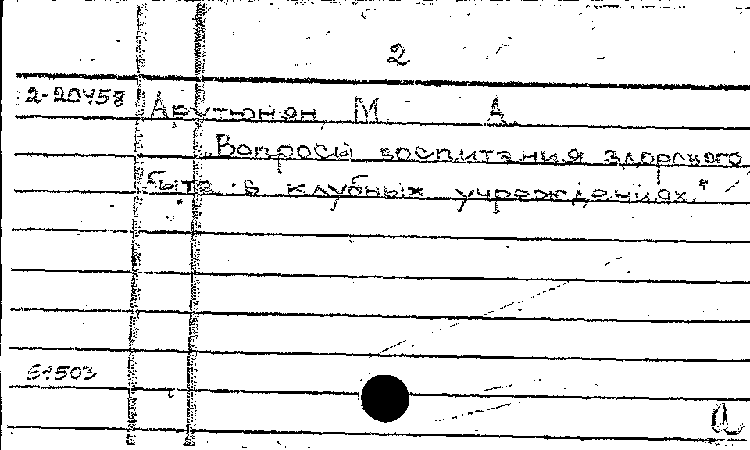 2
2-20458 Арутюнян М. А.
Вопросы воспитания здорового
быта в клубных учреждениях."
61503